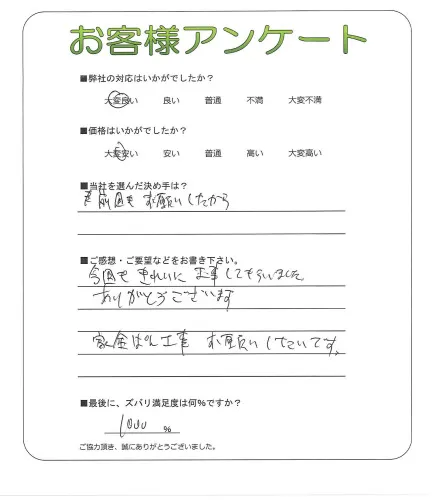 お客様アンケート
■弊社の対応はいかがでしたか？
大変良い 良い 普通 不満 大変不満
■価格はいかがでしたか？
大変安い 安い 普通 高い 大変高い
■当社を選んだ決め手は？
前回も お願いしたから
■ご感想・ご要望などをお書き下さい。
今回も きれいに 工事してもらいました
ありがとうございます
板金 工事も お願いしたいです。
■最後に、ズバリ満足度は何％ですか？
1000 ％
ご協力頂き、誠にありがとうございました。